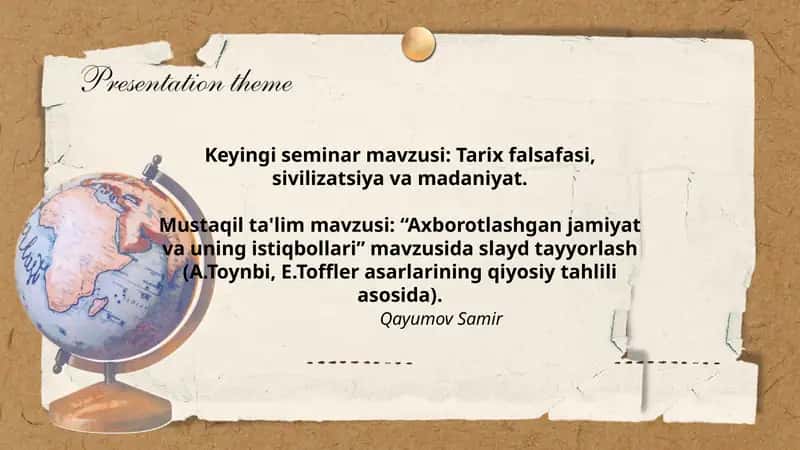 Presentation theme
Keyingi seminar mavzusi: Tarix falsafasi,
sivilizatsiya va madaniyat.
Mustaqil ta'lim mavzusi: “Axborotlashgan jamiyat
va uning istiqbollari” mavzusida slayd tayyorlash
(A.Toynbi, E.Toffler asarlarining qiyosiy tahlili
asosida).
Qayumov Samir